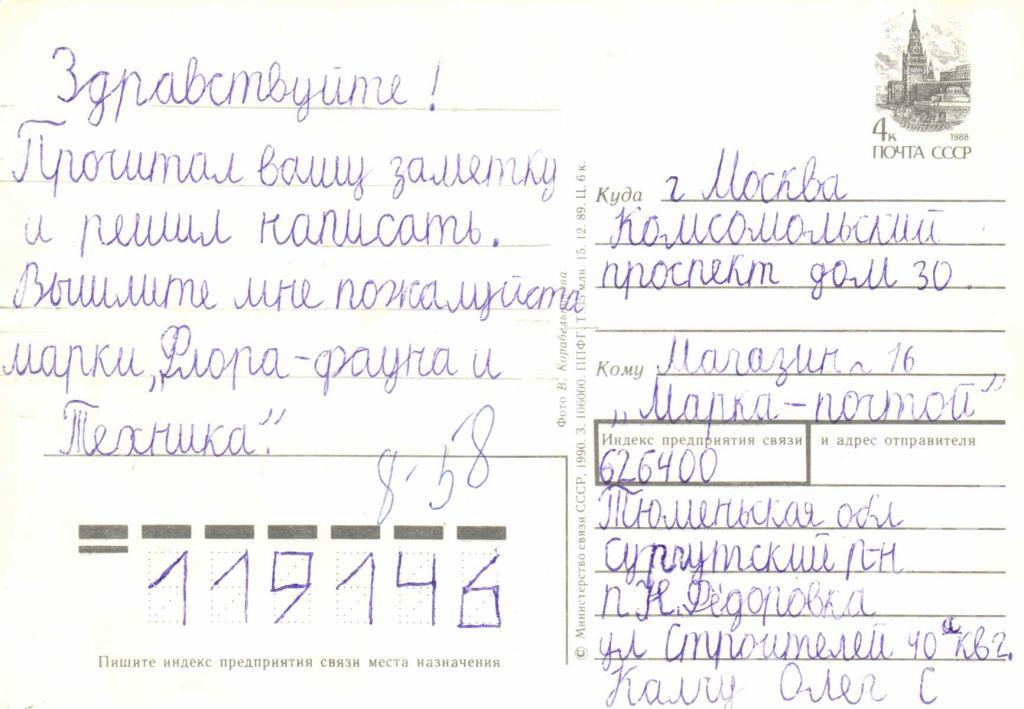 Здравствуйте!
Прочитал вашу заметку
и решил написать.
Вышлите мне пожалуйста
марки „Флора-фауна и
Техника".
8-58
119146
Пишите индекс предприятия связи места назначения
© Министерство связи СССР, 1990. З. 106000. ППФГ. Т. млн. 15.12.89. Ц. 6 к.
Фото В.
4к
1988
ПОЧТА СССР
Куда г Москва
Комсомольский
проспект дом 30.
Кому Магазин 16
„Марка-почтой"
Индекс предприятия связи и адрес отправителя
626400
Тюменьская обл
Сургутский р-н
п. Н. Фёдоровка
ул Строителей 40а кв 2.
Олег С